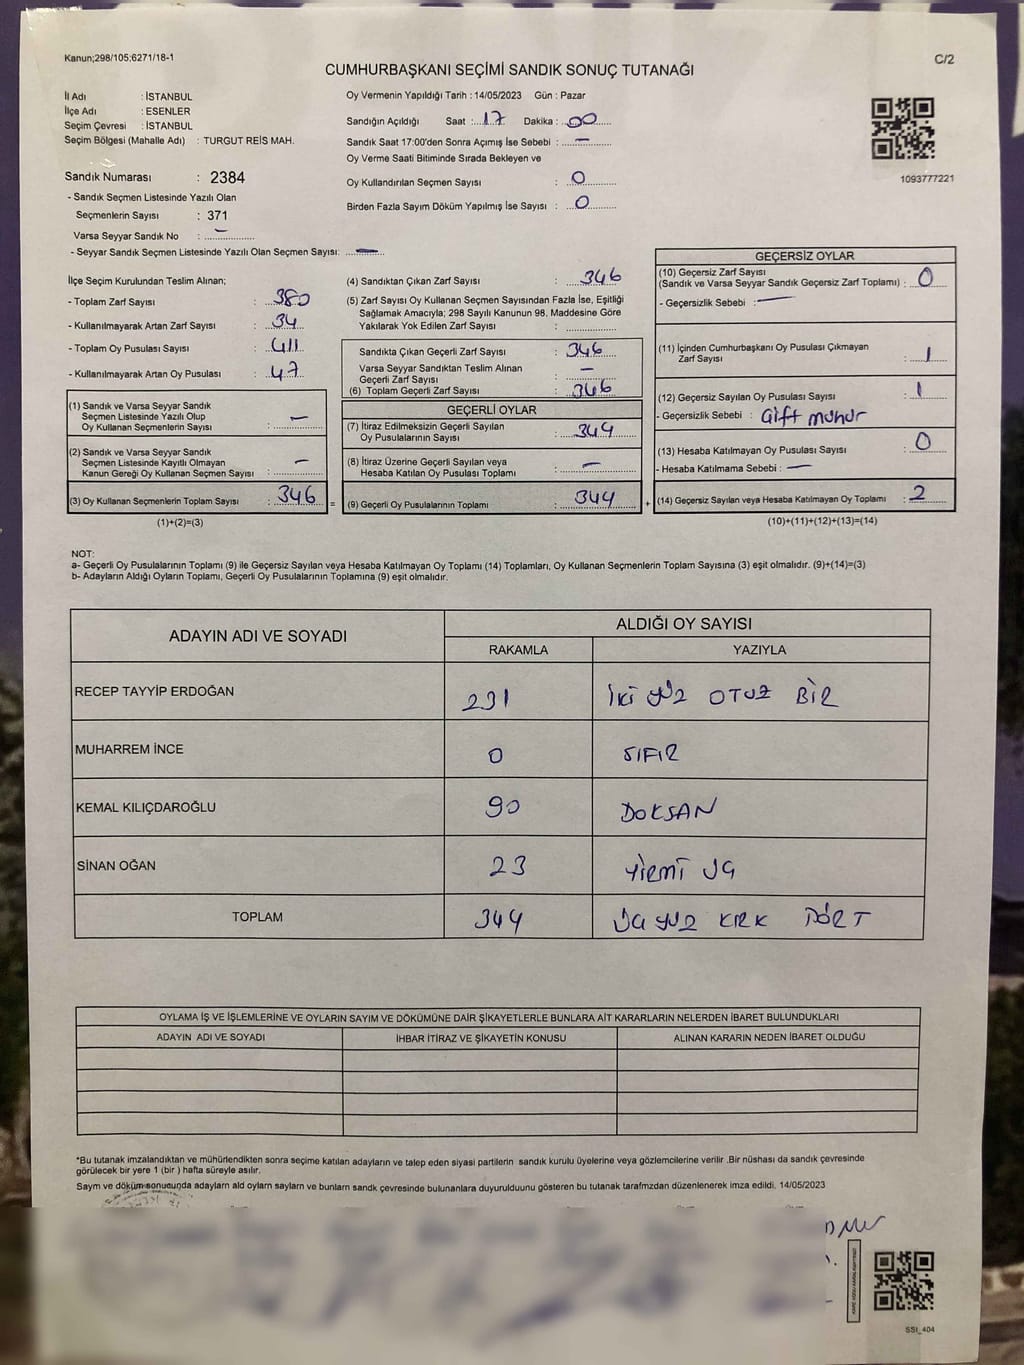 Kanun;298/105;6271/18-1
C/2
CUMHURBAŞKANI SEÇİMİ SANDIK SONUÇ TUTANAĞI
İl Adı : İSTANBUL
İlçe Adı : ESENLER
Seçim Çevresi : İSTANBUL
Seçim Bölgesi (Mahalle Adı) : TURGUT REİS MAH.
Sandık Numarası : 2384
- Sandık Seçmen Listesinde Yazılı Olan
Seçmenlerin Sayısı : 371
Varsa Seyyar Sandık No : –
- Seyyar Sandık Seçmen Listesinde Yazılı Olan Seçmen Sayısı: –
Oy Vermenin Yapıldığı Tarih : 14/05/2023 Gün : Pazar
Sandığın Açıldığı Saat : 17 Dakika : 00
Sandık Saat 17:00'den Sonra Açımış İse Sebebi : –
Oy Verme Saati Bitiminde Sırada Bekleyen ve
Oy Kullandırılan Seçmen Sayısı : 0
Birden Fazla Sayım Döküm Yapılmış İse Sayısı : 0
1093777221
İlçe Seçim Kurulundan Teslim Alınan;
- Toplam Zarf Sayısı : 380
- Kullanılmayarak Artan Zarf Sayısı : 34
- Toplam Oy Pusulası Sayısı : 411
- Kullanılmayarak Artan Oy Pusulası : 47
(1) Sandık ve Varsa Seyyar Sandık
Seçmen Listesinde Yazılı Olup
Oy Kullanan Seçmenlerin Sayısı : –
(2) Sandık ve Varsa Seyyar Sandık
Seçmen Listesinde Kayıtlı Olmayan
Kanun Gereği Oy Kullanan Seçmen Sayısı : –
(3) Oy Kullanan Seçmenlerin Toplam Sayısı : 346
(1)+(2)=(3)
=
(4) Sandıktan Çıkan Zarf Sayısı : 346
(5) Zarf Sayısı Oy Kullanan Seçmen Sayısından Fazla İse, Eşitliği
Sağlamak Amacıyla; 298 Sayılı Kanunun 98. Maddesine Göre
Yakılarak Yok Edilen Zarf Sayısı :
Sandıkta Çıkan Geçerli Zarf Sayısı : 346
Varsa Seyyar Sandıktan Teslim Alınan
Geçerli Zarf Sayısı : –
(6) Toplam Geçerli Zarf Sayısı : 346
GEÇERLİ OYLAR
(7) İtiraz Edilmeksizin Geçerli Sayılan
Oy Pusulalarının Sayısı : 344
(8) İtiraz Üzerine Geçerli Sayılan veya
Hesaba Katılan Oy Pusulası Toplamı : –
(9) Geçerli Oy Pusulalarının Toplamı : 344
+
GEÇERSİZ OYLAR
(10) Geçersiz Zarf Sayısı
(Sandık ve Varsa Seyyar Sandık Geçersiz Zarf Toplamı) : 0
- Geçersizlik Sebebi : –
(11) İçinden Cumhurbaşkanı Oy Pusulası Çıkmayan
Zarf Sayısı : 1
(12) Geçersiz Sayılan Oy Pusulası Sayısı : 1
- Geçersizlik Sebebi : Çift mühür
(13) Hesaba Katılmayan Oy Pusulası Sayısı : 0
- Hesaba Katılmama Sebebi : –
(14) Geçersiz Sayılan veya Hesaba Katılmayan Oy Toplamı : 2
(10)+(11)+(12)+(13)=(14)
NOT:
a- Geçerli Oy Pusulalarının Toplamı (9) ile Geçersiz Sayılan veya Hesaba Katılmayan Oy Toplamı (14) Toplamları, Oy Kullanan Seçmenlerin Toplam Sayısına (3) eşit olmalıdır. (9)+(14)=(3)
b- Adayların Aldığı Oyların Toplamı, Geçerli Oy Pusulalarının Toplamına (9) eşit olmalıdır.
ADAYIN ADI VE SOYADI
ALDIĞI OY SAYISI
RAKAMLA YAZIYLA
RECEP TAYYİP ERDOĞAN 231 İKİ YÜZ OTUZ BİR
MUHARREM İNCE 0 SIFIR
KEMAL KILIÇDAROĞLU 90 DOKSAN
SİNAN OĞAN 23 YİRMİ ÜÇ
TOPLAM 344 ÜÇ YÜZ KIRK DÖRT
OYLAMA İŞ VE İŞLEMLERİNE VE OYLARIN SAYIM VE DÖKÜMÜNE DAİR ŞİKAYETLERLE BUNLARA AİT KARARLARIN NELERDEN İBARET BULUNDUKLARI
ADAYIN ADI VE SOYADI İHBAR İTİRAZ VE ŞİKAYETİN KONUSU ALINAN KARARIN NEDEN İBARET OLDUĞU
*Bu tutanak imzalandıktan ve mühürlendikten sonra seçime katılan adayların ve talep eden siyasi partilerin sandık kurulu üyelerine veya gözlemcilerine verilir .Bir nüshası da sandık çevresinde
görülecek bir yere 1 (bir ) hafta süreyle asılır.
Sayım ve döküm sonucunda adayların ald oyların sayların ve bunların sandk çevresinde bulunanlara duyurulduunu gösteren bu tutanak tarafmzdan düzenlenerek imza edildi. 14/05/2023
SSI_404